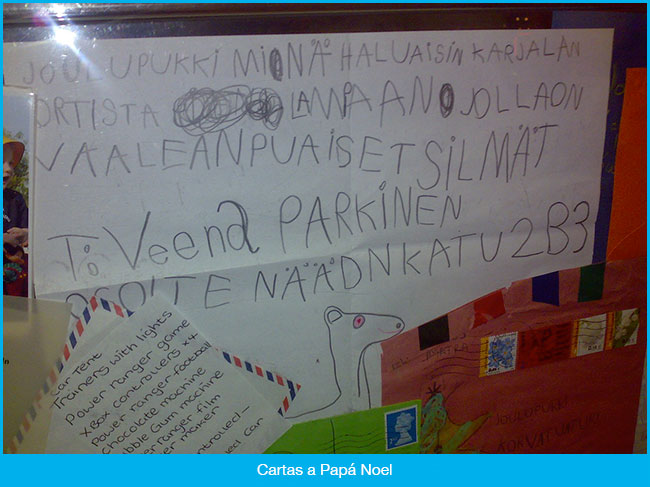 JOULUPUKKI MINÄ HALUAISIN KARJALAN
ORTISTA LAMPAAN JOLLAON
VAALEANPUAISET SILMÄT
To Veena PARKINEN
OSOITE NÄÄDNKATU 2B3
car Tent
Trainers with lights
Power ranger game
XBox controllers x4
Power ranger football
chocolate machine
bble Gum machine
er ranger film
er maker
ontrolled
ed car
JOULUPUKI
KORVATUNTURI
Cartas a Papá Noel